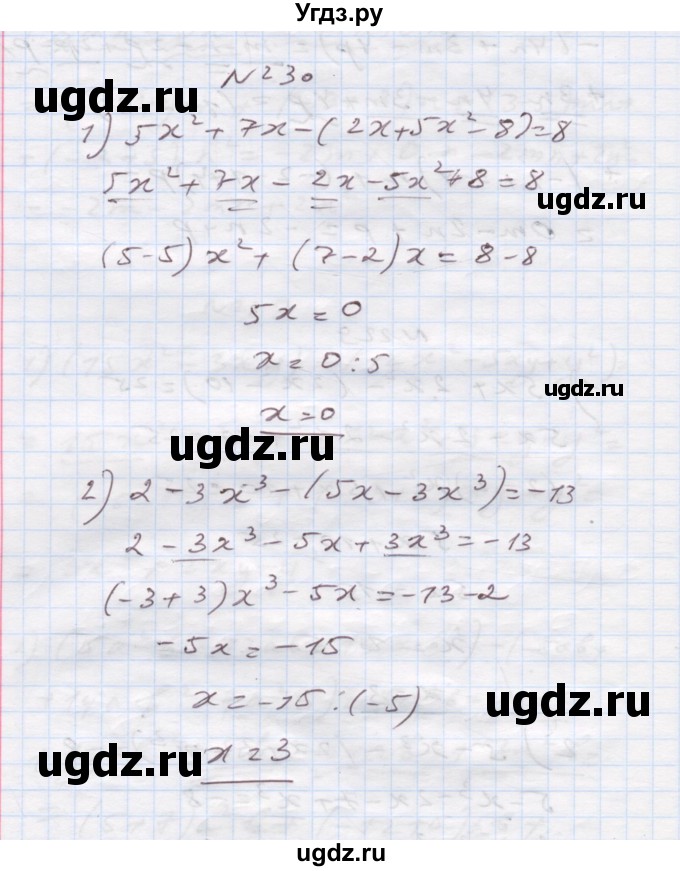 Угдз.ру
N 230
ugdz.ru
1) 5x² + 7x - (2x + 5x² - 8) = 8
5x² + 7x - 2x - 5x² + 8 = 8
ugdz.ru
(5-5)x² + (7-2)x = 8-8
5x = 0
x = 0 : 5
ugdz.ru
x = 0
ugdz.ru
2) 2 - 3x³ - (5x - 3x³) = -13
2 - 3x³ - 5x + 3x³ = -13
(-3+3)x³ - 5x = -13 - 2
-5x = -15
x = -15 : (-5)
ugdz.ru
x = 3
ugdz.ru
ugdz.ru